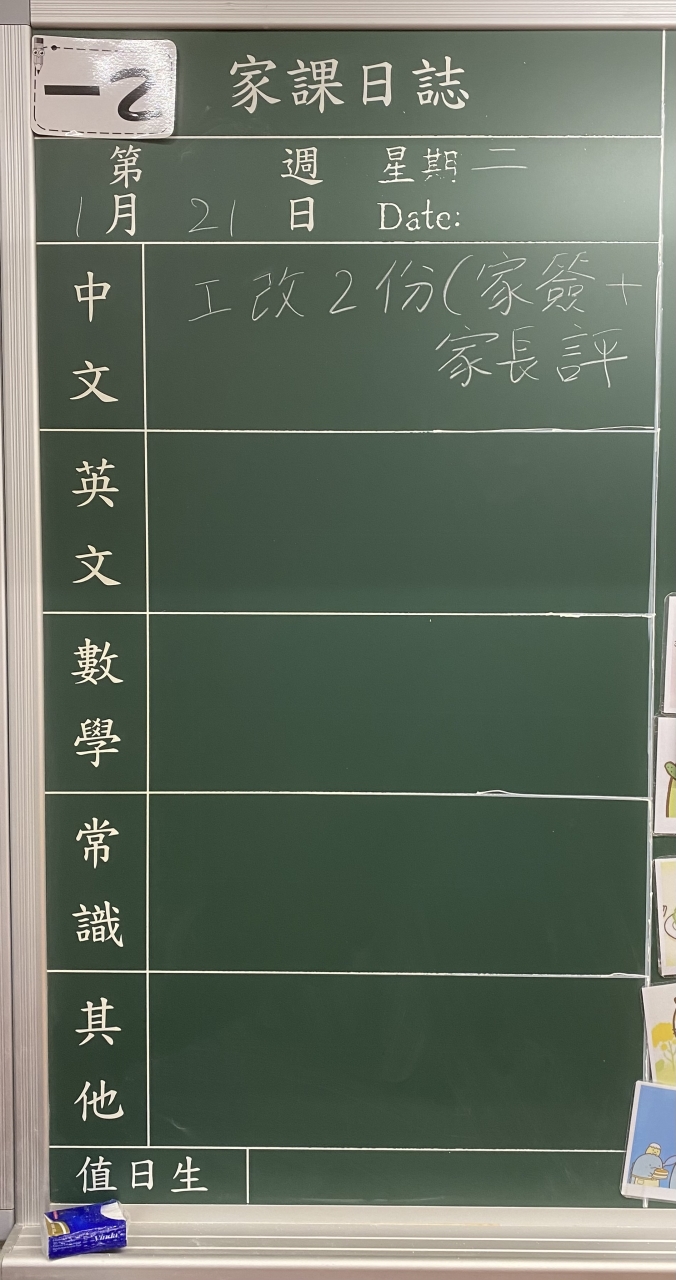 家課日誌
第 週 星期二
1月 21日 Date:
中文 工改2份(家簽+
家長評
英文
數學
常識
其他
值日生
Vinda